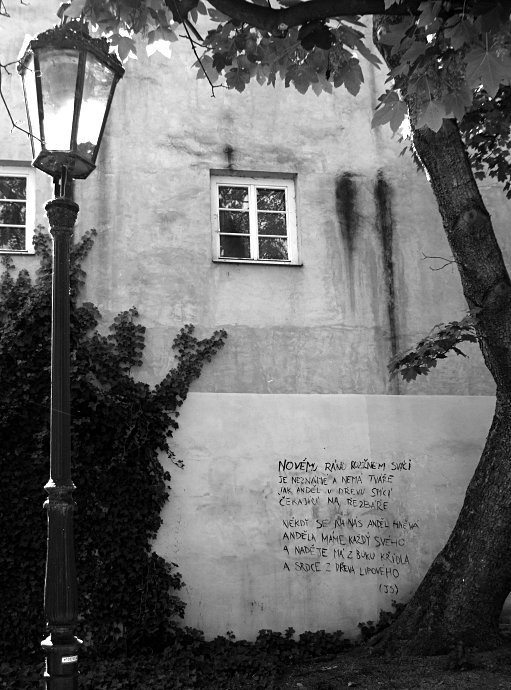 NOVÉMU RÁNU ROZŽNEM SVÍCI
JE NEZNÁMÉ A NEMÁ TVÁŘE
JAK ANDĚL V DŘEVU SPÍCÍ
ČEKAJÍCÍ NA ŘEZBÁŘE
NĚKDY SE NA NÁS ANDĚL
ANDĚLA MÁME KAŽDÝ SVÉHO
A NADĚJE MÁ Z BUKU KŘÍDLA
A SRDCE Z DŘEVA LIPOVÉHO
(JS)